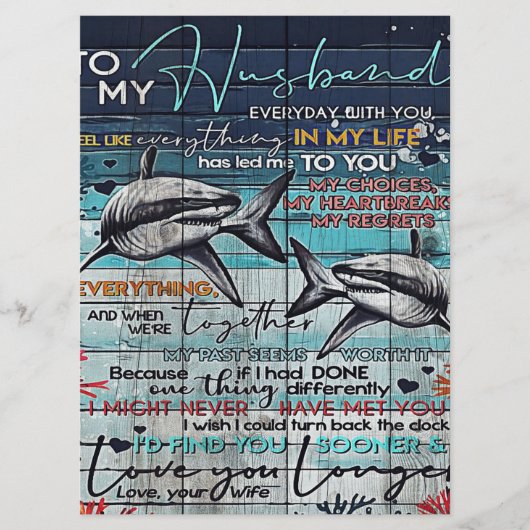 TO MY Husband
EVERYDAY WITH YOU,
EEL LIKE everything IN MY LIFE
has led me TO YOU
MY CHOICES,
MY HEARTBREAKS
MY REGRETS
EVERYTHING,
AND WHEN
WE'RE together
MY PAST SEEMS WORTH IT
Because if I had DONE
one thing differently
I MIGHT NEVER HAVE MET YOU
I wish I could turn back the clock
I'D FIND YOU SOONER &
Love you Longe
Love, your Wife